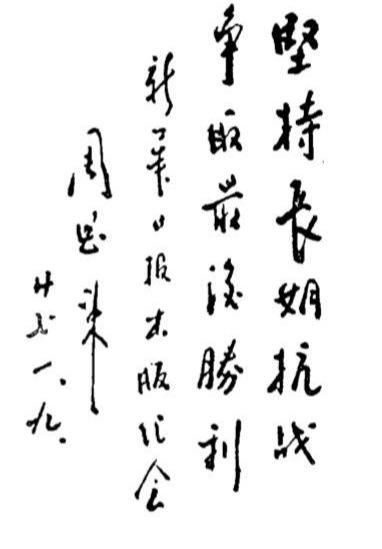 堅持長期抗战
爭取最後勝利
新華日报出版纪念
周恩來
廿七、一、九.